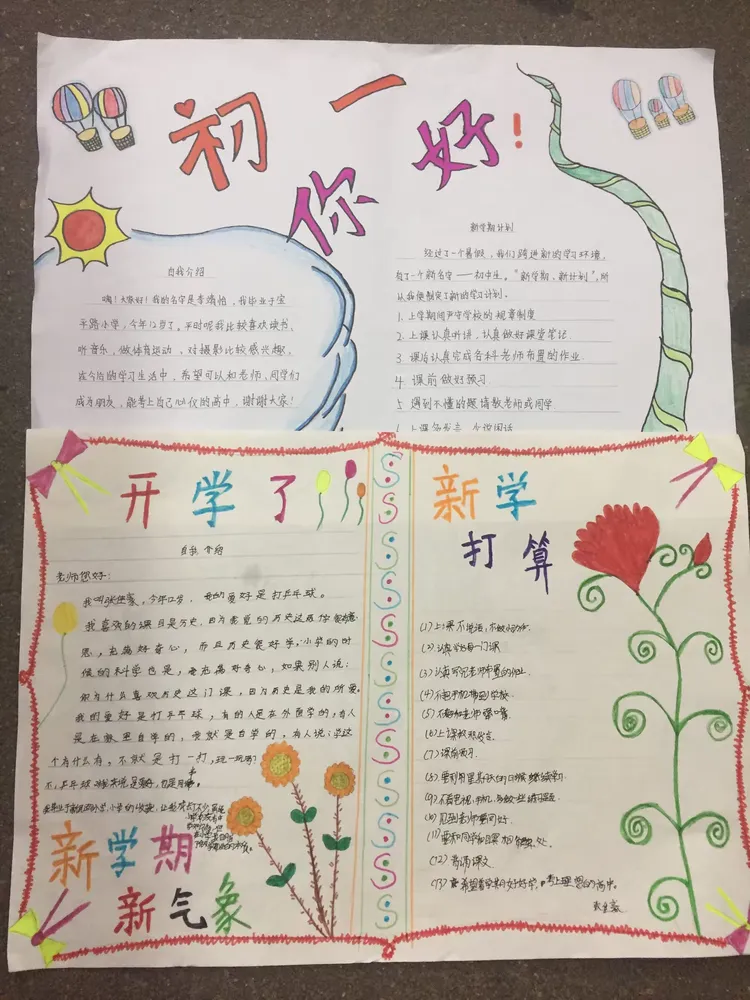 初一
你好!
自我介绍
嗨!大家好!我的名字是李靖怡,我毕业于宝
平路小学,今年12岁了。平时呢我比较喜欢读书、
听音乐,做体育运动,对摄影比较感兴趣,
在今后的学习生活中,希望可以和老师、同学们
成为朋友,能考上自己心仪的高中,谢谢大家!
新学期计划
经过了一个暑假,我们跨进新的学习环境,
有了一个新名字——初中生。“新学期、新计划”,所
以我便制定了新的学习计划。
1. 上学期间严守学校的规章制度
2. 上课认真听讲,认真做好课堂笔记.
3. 课后认真完成各科老师布置的作业.
4. 课前做好预习.
5. 遇到不懂的题请教老师或同学.
开学了
自我介绍
老师您好:
我叫张,今年12岁,我的爱好是打乒乓球。
我喜欢的课目是历史,因为
思,充满好奇心,而且历史很好学,小学的时
候的科学也是,充满好奇心,如果别人说:
你为什么喜欢历史这门课,因为历史是我的所爱。
我的爱好是打乒乓球,有的人是在外面学的,有人
是在家里自学的,我就是自学的,有人说:学这
个有什么用,不就是打一打,玩一玩吗?
不,乒乓球
新学期
新气象
新学
打算
(1)上课不说话,不做小动作.
(2)认真学好每一门课
(3)认真写完老师布置的作业.
(4)不把手机带到学校.
(5)不
(6)上课积极发言.
(7)课前预习.
(8)
(9)不看电视、手机、多做些练习题.
(10)见到老师要问好.
(11)要和同学和睦相处.
(12)背诵课文
(13)希望着学期好好学,考上理想的高中.